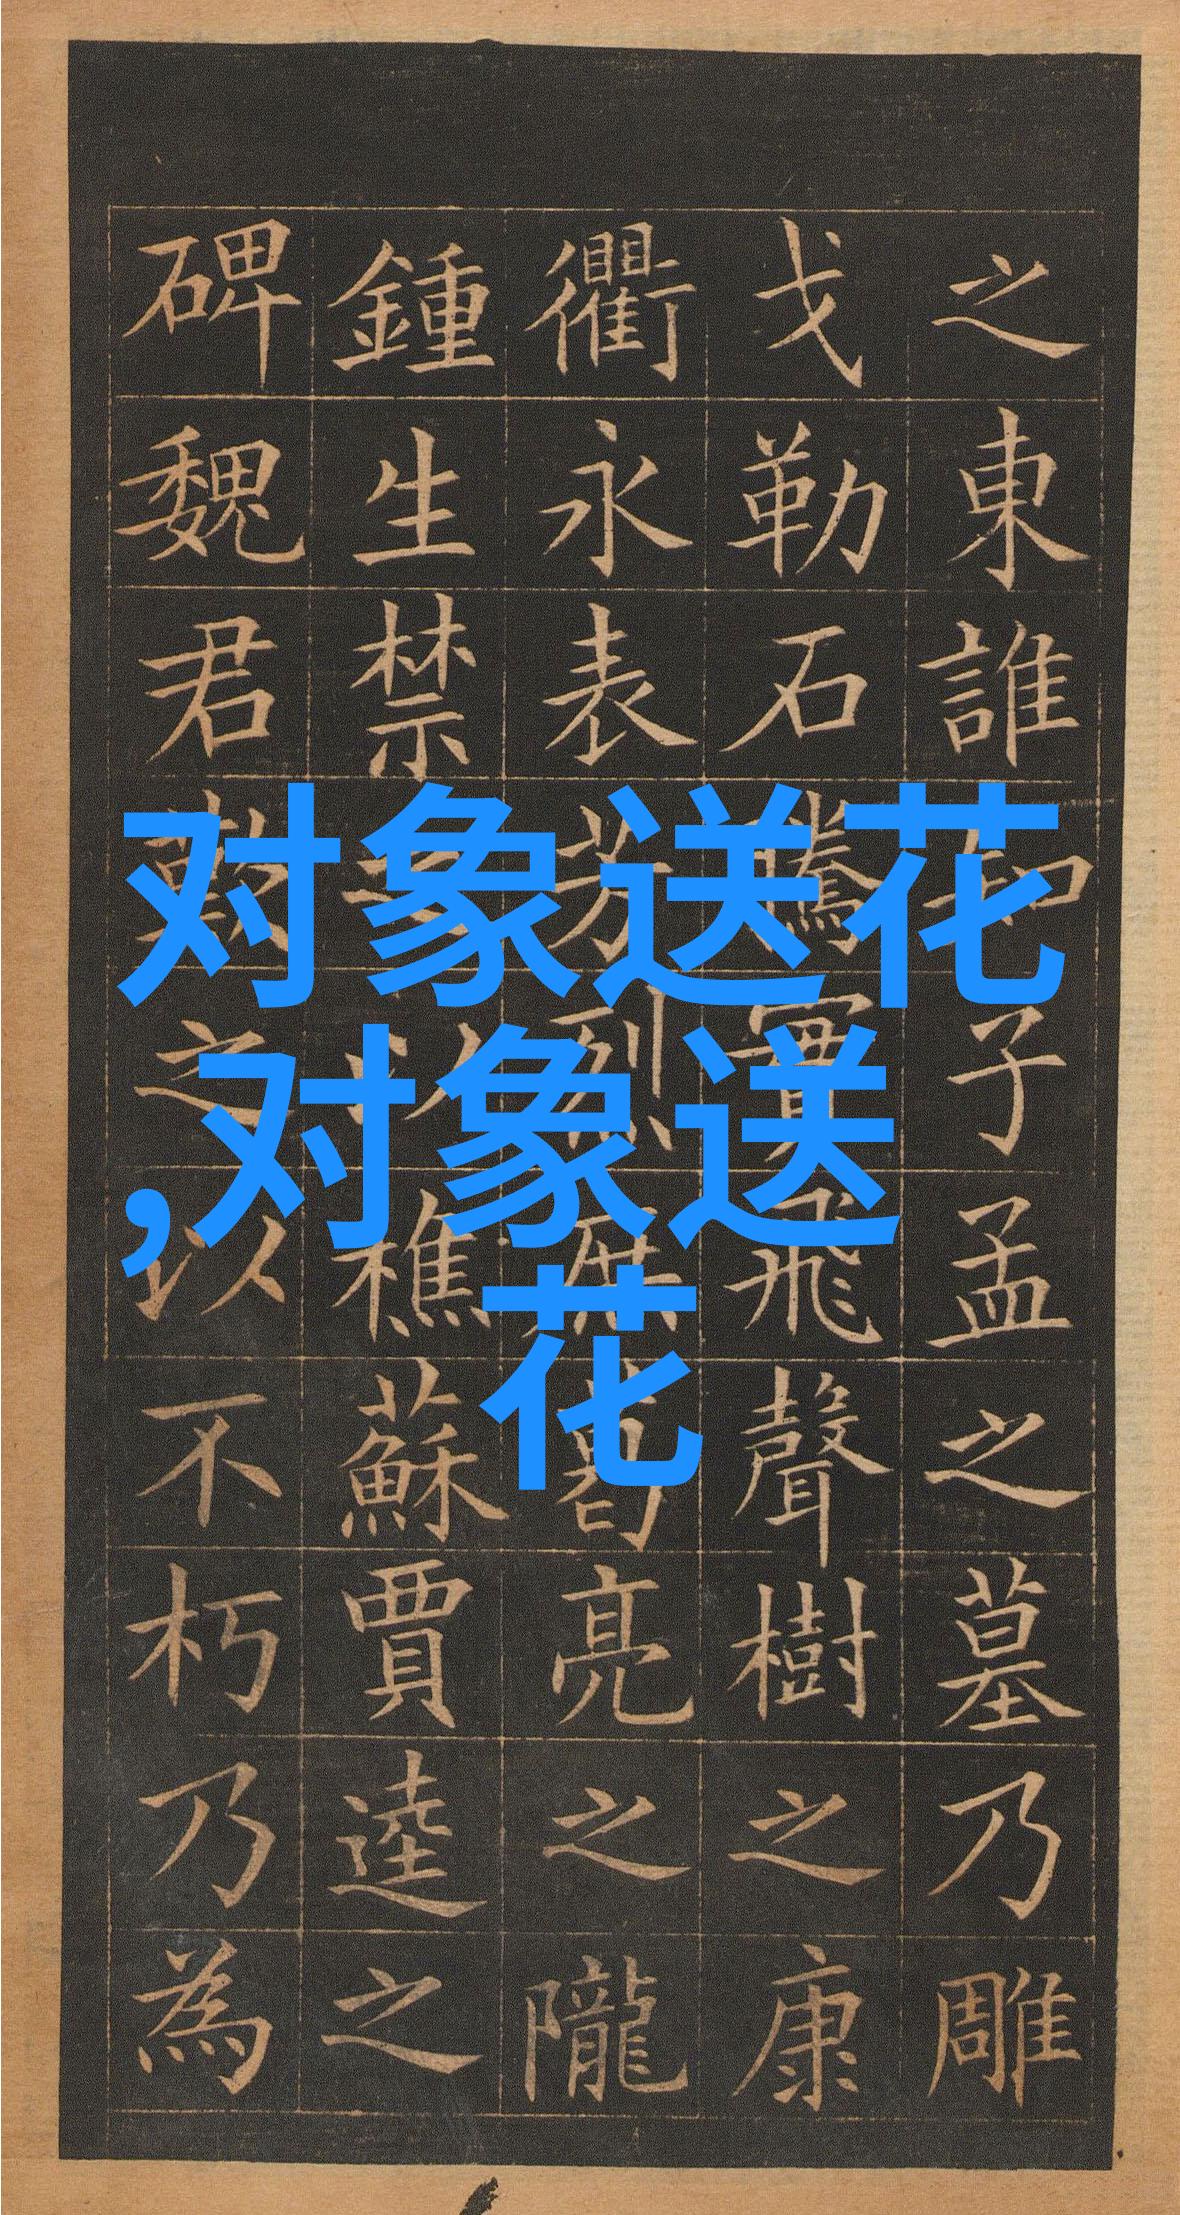 对象送花
,对象送
花
之東誰知子孟之墓乃雕
戈勒石騰實飛聲樹之康
衢永表芳烈庶葛亮之隴
鍾生禁以樵蘇賈逵之
碑魏君歎之以不朽乃為